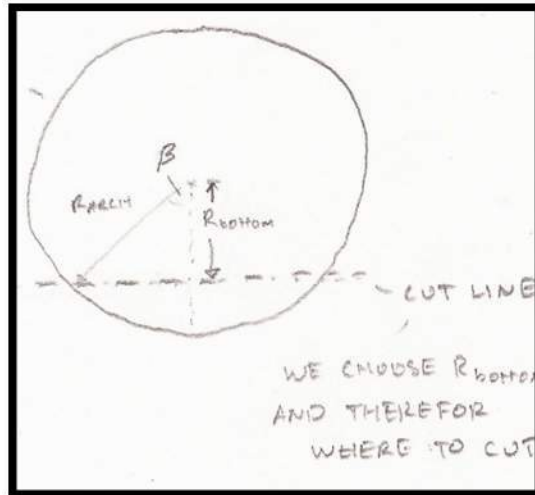 β
RARCH
Rbottom
CUT LINE
WE CHOOSE Rbottom
AND THEREFOR
WHERE TO CUT